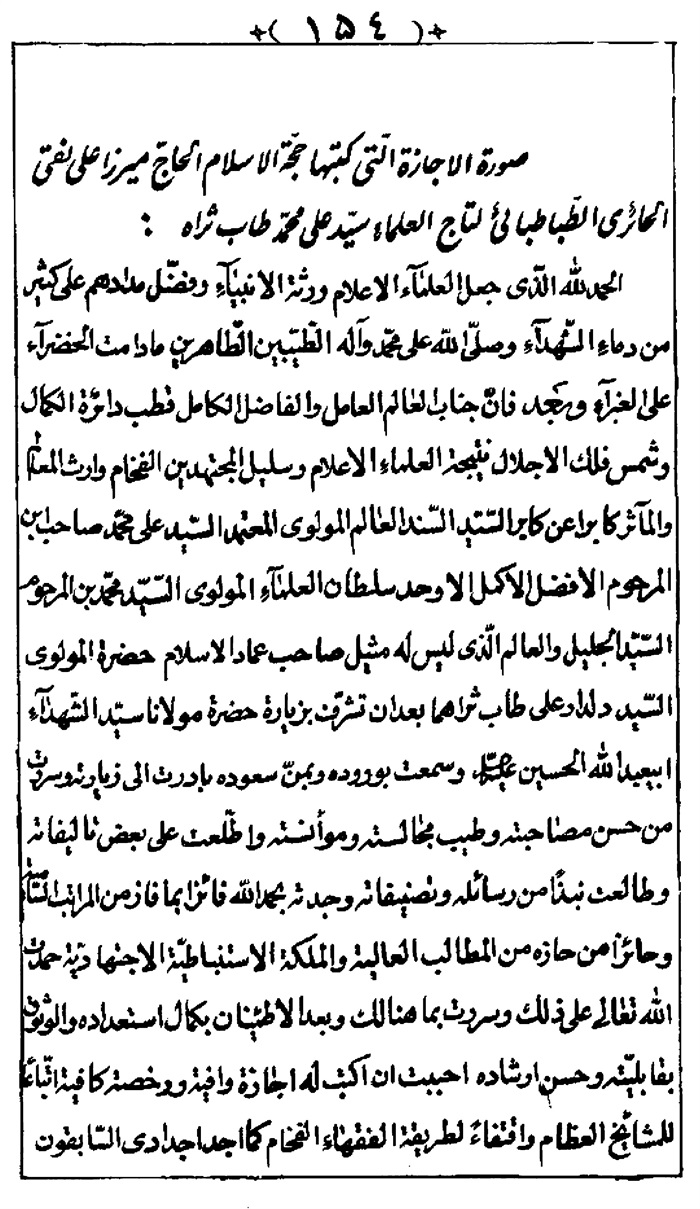 (١٥٤)
صورة الاجازة الّتى كتبها حجّة الاسلام الحاجّ ميرزا على نقى
الحائرى الطّباطبائى لتاج العلماء سيّد على محمّد طاب ثراه :
الحمد لله الذى جعل العلمآء الاعلام ورثة الانبيآء وفضّل مدادهم على كثير
من دماء الشّهدآء وصلّى الله على محمّد وآله الطّيّبين الطّاهرين مادامت الخضرآء
على الغبرآء وبعد فانّ جناب العالم العامل والفاضل الكامل قطب دائرة الكمال
وشمس فلك الاجلال نتيجة العلماء الاعلام وسليل المجتهدين الفخام وارث المعالى
والمآثر كابرا عن كابر السّيّد السّند العالم المولوى المعتمد السّيد على محمّد صاحب ابن
المرحوم الافضل الاكمل الاوحد سلطان العلمآء المولوى السّيّد محمّد بن المرحوم
السّيّد الجليل والعالم الّذى ليس له مثيل صاحب عماد الاسلام حضرة المولوى
السّيد دلدار على طاب ثراهما بعد ان تشرّف بزيارة حضرة مولانا سيّد الشّهدآء
ابيعبد الله الحسين وسمعت بوروده وبمنّ سعوده بادرت الى زيارته وسررت
من حسن مصاحبته وطيب مجالسته وموأنسته واطّلعت على بعض تاليفاته
وطالعت نبذًا من رسائله وتصنيفاته وجدته بحمد الله فائزا بما فاز من المراتب السّامية
وحائزا من حازه من المطالب العالية والملكة الاستنباطيّة الاجتهاديّة حمدت
الله تعالى على ذلك وسررت بما هنالك وبعد الاطينان بكمال استعداده والوثوق
بقابليّته وحسن ارشاده احببت ان اكتب له اجازة وافية ورخصة كافية اتّباعًا
للمشائخ العظام واقتفاءً لطريقة الفقهاء الفخام كما اجد اجدادى السّابقون